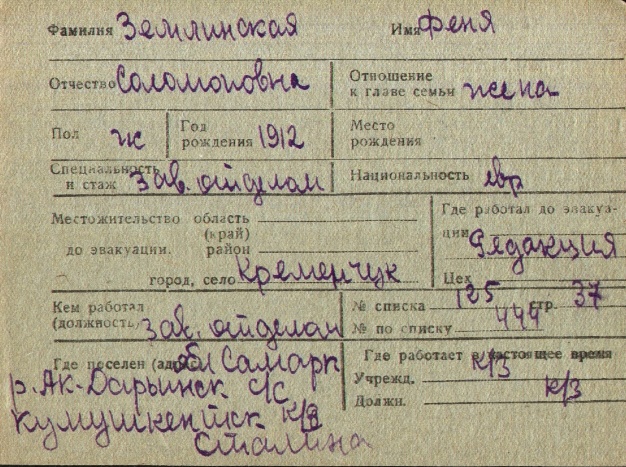 Фамилия Землинская Имя Феня
Отчество Соломоновна Отношение к главе семьи жена
Пол ж Год рождения 1912 Место рождения
Специальность и стаж Зав. отделом Национальность евр
Местожительство область (край) район
до эвакуации. город, село Кременчук
Где работал до эвакуации Редакция
Цех
Кем работал (должность) Зав. отделом
№ списка 125 стр. 37
№ по списку 444
Где поселен (адрес) обл Самарк
р. Ак-Дарьинск с/с
Кумушкентск к/з
Сталина
Где работает в настоящее время
Учрежд. к/з
Должн. к/з